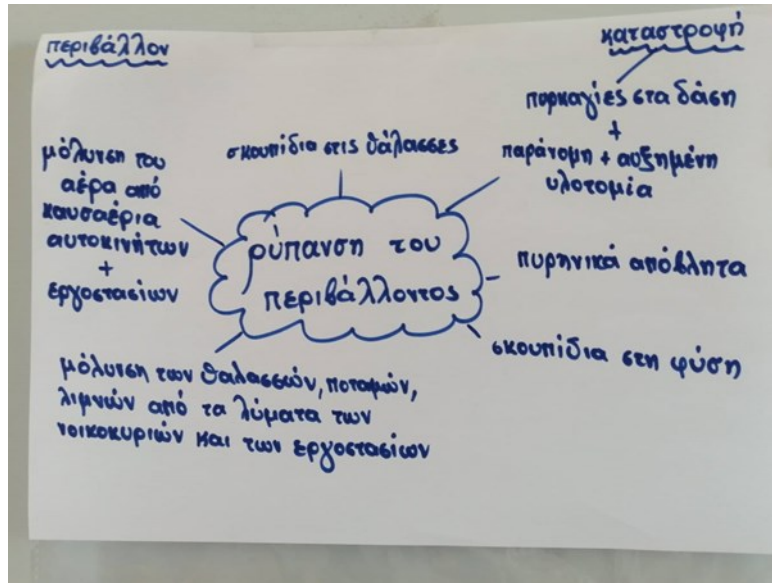 περιβάλλον
καταστροφή
πυρκαγιές στα δάση
+
παράνομη + αυξημένη
υλοτομία
σκουπίδια στις θάλασσες
μόλυνση του
αέρα από
καυσαέρια
αυτοκινήτων
+
εργοστασίων
ρύπανση του
περιβάλλοντος
πυρηνικά απόβλητα
σκουπίδια στη φύση
μόλυνση των θαλασσών, ποταμών,
λιμνών από τα λύματα των
νοικοκυριών και των εργοστασίων